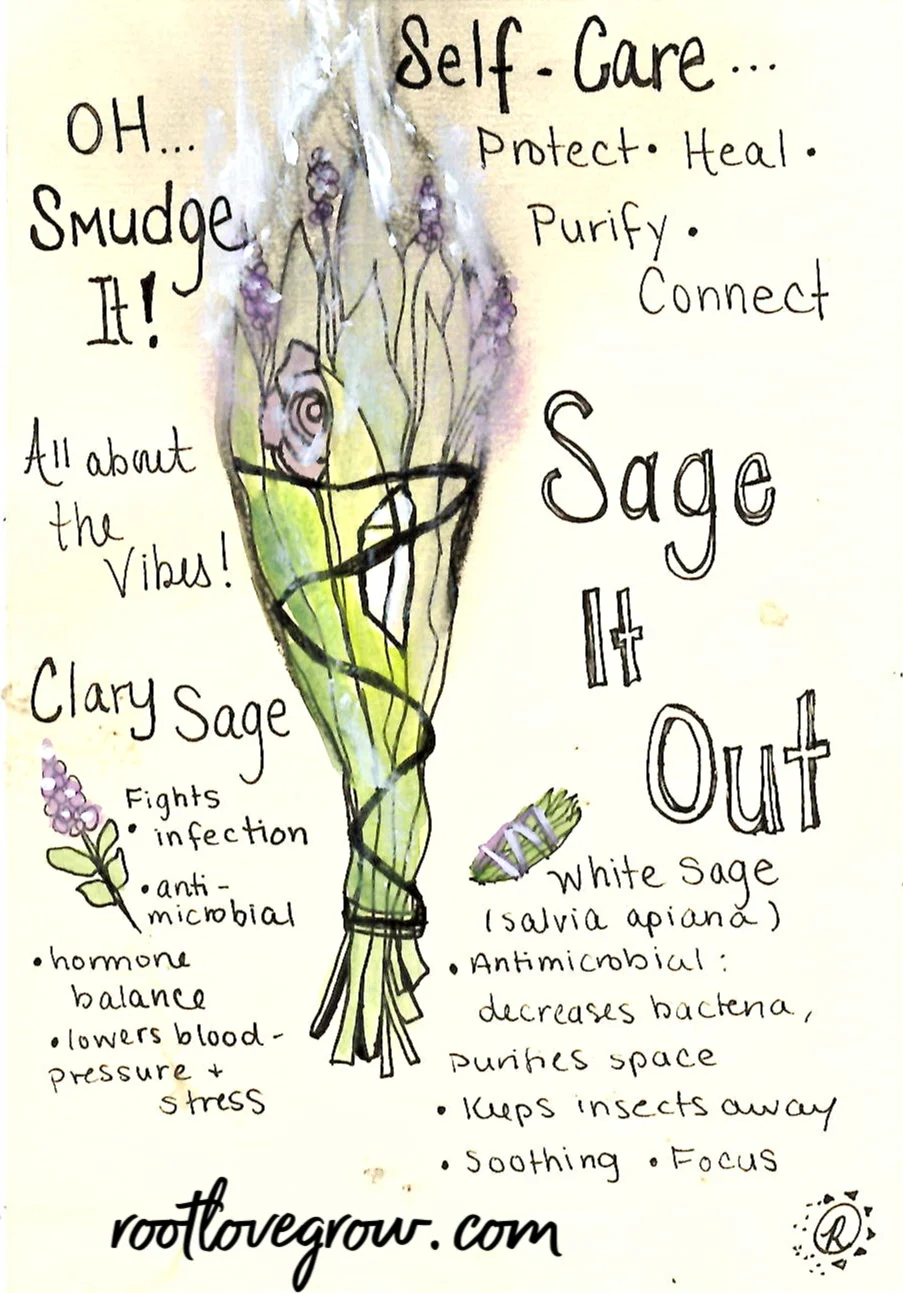 Self-Care...
Protect • Heal •
Purify •
Connect
OH...
Smudge
It!
All about
the
Vibes!
Sage
It
Out
Clary Sage
Fights
• infection
• anti-
microbial
• hormone
balance
• lowers blood-
pressure +
stress
White Sage
(salvia apiana)
• Antimicrobial:
decreases bacteria,
purifies space
• Keeps insects away
• Soothing • Focus
rootlovegrow.com
R